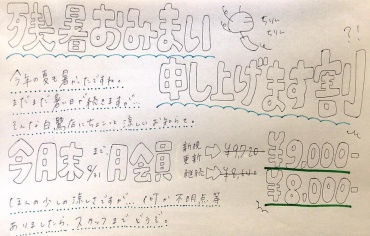 残暑お見まい
ちりん
ちりん
申し上げます割
?!
今年の夏も暑かったですね。
まだまだ暑い日が続きます…
そんな白鷺店にちょこっと涼しいお知らせ。
今月末 8/31 月会員
新規
更新 ⇒ ¥9,720- ¥9,000-
継続 ⇒ ¥8,640- ¥8,000-
ほんの少しの涼しさですが… 何か不明点等
ありましたら、スタッフまでどうぞ。